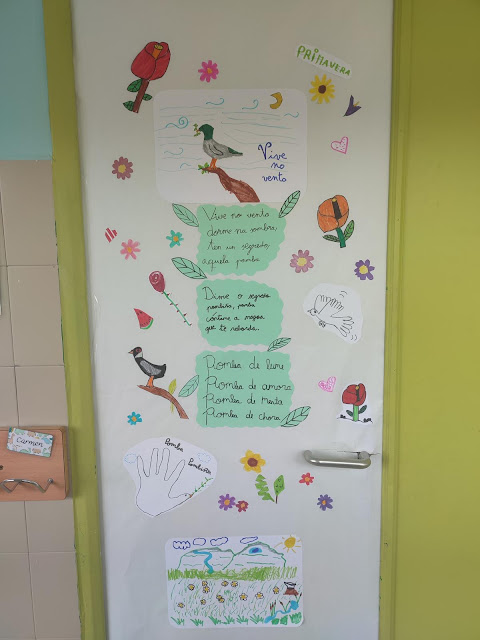 PRIMAVERA
Vive
no
vento
Vive no vento
dorme na sombra,
ten un segredo,
aquela pomba
Dime o segredo
pombiña, pomba
cóntame a mágoa
que te reborda.
Pomba de lume
Pomba de amora
Pomba de menta
Pomba de chora
Pomba
Carmen